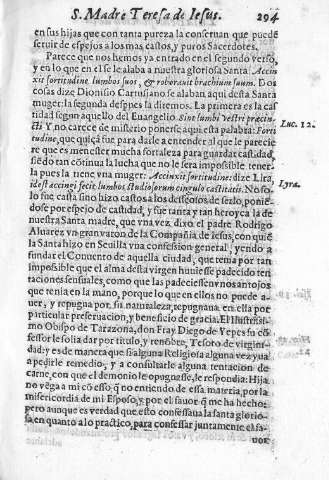 S. Madre Teresa de Iesus. 294
en sus hijas que con tanta pureza la conseruan que puede
seruir de espejos a los mas castos, y puros Sacerdotes.
Parece que nos hemos ya entrado en el segundo verso,
y en lo que en el se alaba a nuestra gloriosa Santa: Accin
xit fortitudine lumbos suos, & roborauit brachium suum. Dos
cosas dize Dionisio Cartusiano se alaban aqui desta Santa
muger: la segunda despues la diremos. La primera es la cas
tidad segun aquello del Euangelio. Sint lumbi vestri præcin
cti. Y no carece de misterio ponerse aqui esta palabra: Forti
tudine, que quiçà fue para darle a entender al que le parecie
re que es menester mucha fortaleza para guardar castidad,
siẽdo tan cõtinua la lucha que no le serà impossible tener
la pues la tiene vna muger. Accinxit fortitudine: dize Lira,
id est accingi fecit lumbos studiosorum cingulo castitatis. No so
lo fue casta sino hizo castos a los desseosos de serlo, poniẽ
dose por espejo de castidad, y fue tanta y tan heroyca la de
nuestra Santa madre, que vna vez, dixo el padre Rodrigo
Aluarez vn gran varon de la Compañia de Iesus, con quiẽ
la Santa hizo en Seuilla vna confession general, yendo a
fundar el Conuento de aquella ciudad, que tenia por tan
impossible que el alma desta virgen huuiesse padecido ten
taciones sensuales, como que las padeciesse vnos antojos
que tenia en la mano, porque lo que en ellos no puede a-
uer, y repugna por su naturaleza, repugnaua en ella por
particular preseruacion, y beneficio de gracia. El Illustrissi
mo Obispo de Tarazona, don Fray Diego de Yepes su cõ
fessor le solia dar por titulo, y renõbre, Tesoro de virgini-
dad: y es de manera que si alguna Religiosa alguna vez yua
a pedirle remedio, y a consultarle alguna tentacion de
carne, con que el demonio le opugnasse, le respondia: Hija
no vẽga a mi cõ esso, q̃ no entiendo de essa materia, por la
misericordia de mi Esposo, y por el fauor q̃ me ha hecho;
pero aunque es verdad que esto confessaua la santa glorio-
sa en quanto a lo practico, para confessar juntamente el fa-
uor
Luc. 12.
Lyra.